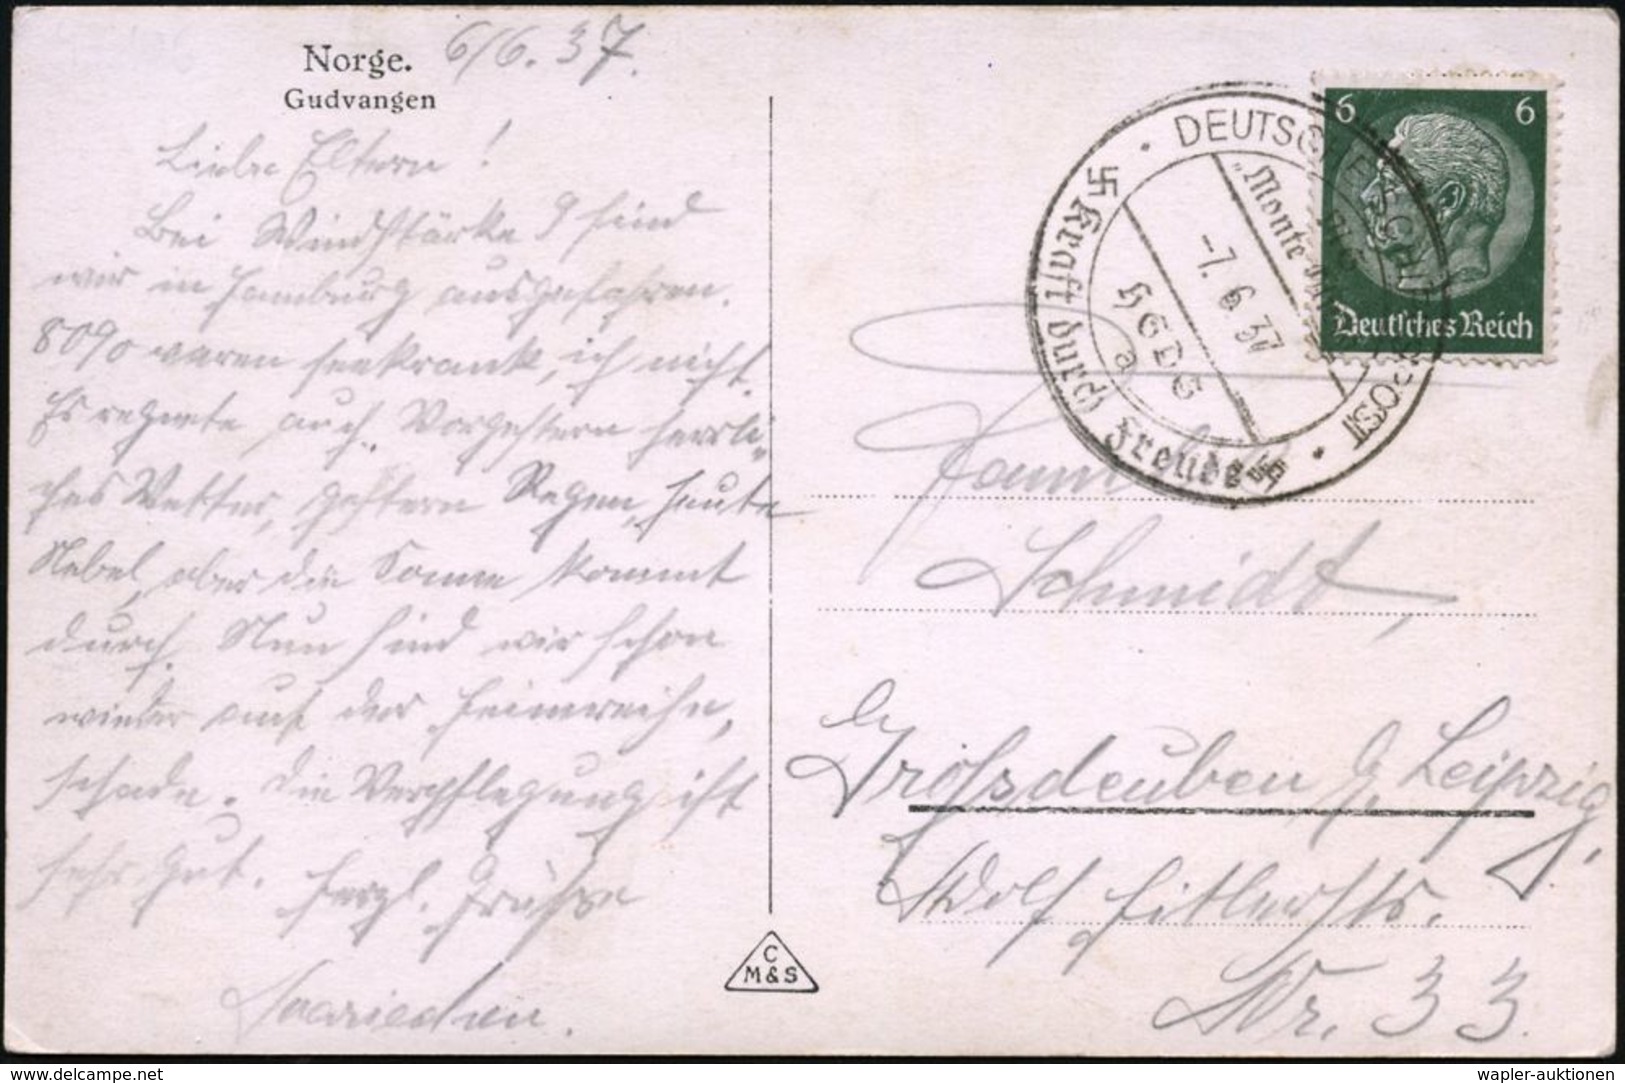 Norge. 6/6.37.
Gudvangen
Liebe Eltern!
Bei Windstärke 9 sind
wir in Hamburg ausgefahren.
80% waren seekrank, ich nicht.
Es regnete auch. Vorgestern herrli-
ches Wetter, gestern Regen, heute
Nebel, aber die Sonne kommt
durch. Nun sind wir schon
wieder auf der Heimreise,
schade. Die Verpflegung ist
sehr gut. Herzl. Grüsse
C
M&S
DEUTSCHE SCHIFFSPOST
"Monte
-7.6.37
HSDG
a
Kraft durch Freude
6 6
Deutsches Reich
Familie
Schmidt,
Grossdeuben b. Leipzig,
Adolf Hitlerstr.
Nr. 33.
www.delcampe.net
wapler-auktionen